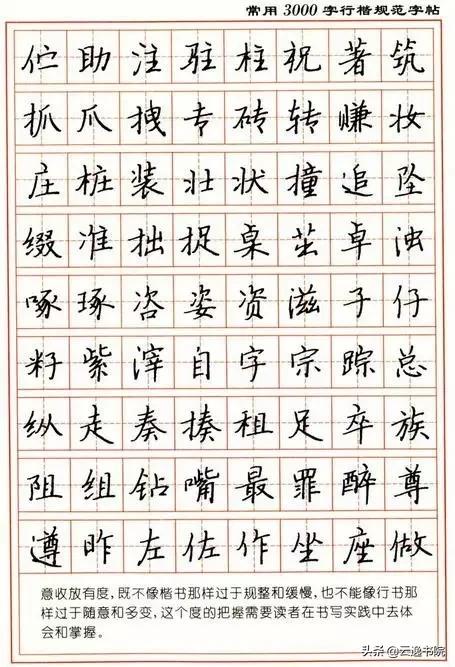 常用3000字行楷规范字帖
伫助注驻柱祝著筑
抓爪拽专砖转赚妆
庄桩装壮状撞追坠
缀准拙捉桌茁卓浊
啄琢咨姿资滋子仔
籽紫滓自字宗踪总
纵走奏揍租足卒族
阻组钻嘴最罪醉尊
遵昨左佐作坐座做
意收放有度,既不像楷书那样过于规整和缓慢,也不能像行书那
样过于随意和多变,这个度的把握需要读者在书写实践中去体
会和掌握。
头条@云逸书院